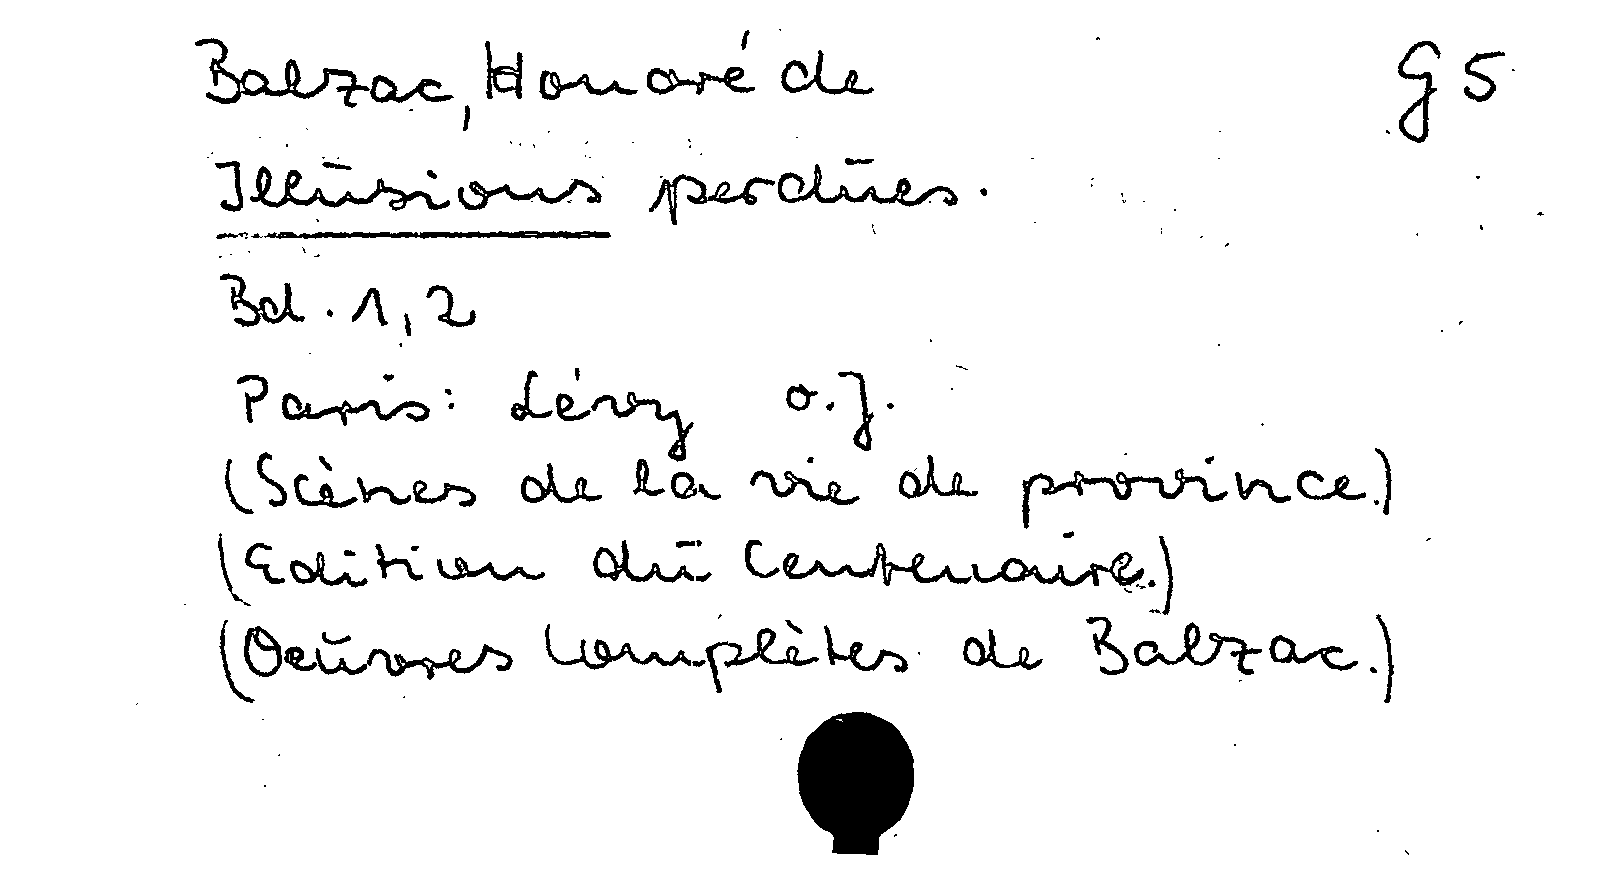 Balzac, Honoré de G 5
Illusions perdues.
Bd. 1,2
Paris: Lévy o.J.
(Scènes de la vie de province.)
(Edition du Centenaire.)
(Oeuvres complètes de Balzac.)